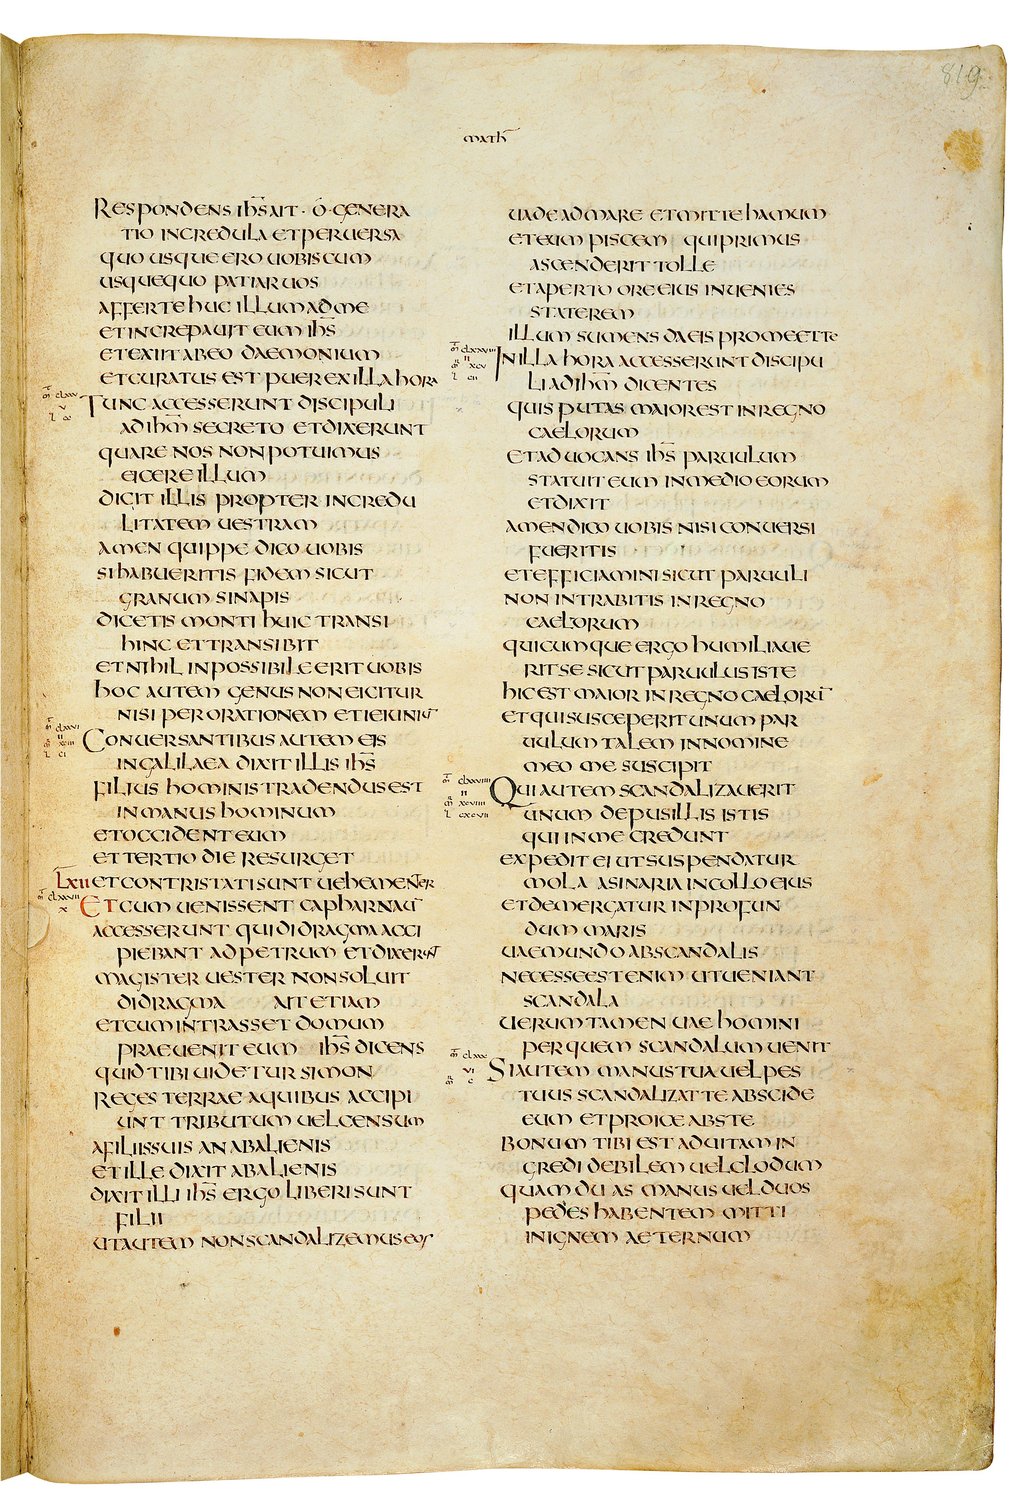 819
MATH
RESPONDENS IHS AIT · O · GENERA
TIO INCREDULA ET PERUERSA
QUO USQUE ERO UOBISCUM
USQUEQUO PATIAR UOS
AFFERTE HUC ILLUM AD ME
ET INCREPAUIT EUM IHS
ET EXIIT AB EO DAEMONIUM
ET CURATUS EST PUER EX ILLA HORA
TUNC ACCESSERUNT DISCIPULI
AD IHM SECRETO ET DIXERUNT
QUARE NOS NON POTUIMUS
EICERE ILLUM
DICIT ILLIS PROPTER INCREDU
LITATEM UESTRAM
AMEN QUIPPE DICO UOBIS
SI HABUERITIS FIDEM SICUT
GRANUM SINAPIS
DICETIS MONTI HUIC TRANSI
HINC ET TRANSIBIT
ET NIHIL INPOSSIBILE ERIT UOBIS
HOC AUTEM GENUS NON EICITUR
NISI PER ORATIONEM ET IEIUNIŪ
CONUERSANTIBUS AUTEM EIS
IN GALILAEA DIXIT ILLIS IHS
FILIUS HOMINIS TRADENDUS EST
IN MANUS HOMINUM
ET OCCIDENT EUM
ET TERTIO DIE RESURGET
LXII ET CONTRISTATI SUNT UEHEMENTER
ET CUM UENISSENT CAPHARNAŪ
ACCESSERUNT QUI DIDRAGMA ACCI
PIEBANT AD PETRUM ET DIXERUNT
MAGISTER UESTER NON SOLUIT
DIDRAGMA AIT ETIAM
ET CUM INTRASSET DOMUM
PRAEUENIT EUM IHS DICENS
QUID TIBI UIDETUR SIMON
REGES TERRAE A QUIBUS ACCIPI
UNT TRIBUTUM UEL CENSUM
A FILIIS SUIS AN AB ALIENIS
ET ILLE DIXIT AB ALIENIS
DIXIT ILLI IHS ERGO LIBERI SUNT
FILII
UT AUTEM NON SCANDALIZEMUS EOS
UADE AD MARE ET MITTE HAMUM
ET EUM PISCEM QUI PRIMUS
ASCENDERIT TOLLE
ET APERTO ORE EIUS INUENIES
STATEREM
ILLUM SUMENS DA EIS PRO ME ET TE
IN ILLA HORA ACCESSERUNT DISCIPU
LI AD IHM DICENTES
QUIS PUTAS MAIOR EST IN REGNO
CAELORUM
ET ADUOCANS IHS PARUULUM
STATUIT EUM IN MEDIO EORUM
ET DIXIT
AMEN DICO UOBIS NISI CONUERSI
FUERITIS
ET EFFICIAMINI SICUT PARUULI
NON INTRABITIS IN REGNO
CAELORUM
QUICUMQUE ERGO HUMILIAUE
RIT SE SICUT PARUULUS ISTE
HIC EST MAIOR IN REGNO CAELORŪ
ET QUI SUSCEPERIT UNUM PAR
UULUM TALEM IN NOMINE
MEO ME SUSCIPIT
QUI AUTEM SCANDALIZAUERIT
UNUM DE PUSILLIS ISTIS
QUI IN ME CREDUNT
EXPEDIT EI UT SUSPENDATUR
MOLA ASINARIA IN COLLO EIUS
ET DEMERGATUR IN PROFUN
DUM MARIS
UAE MUNDO AB SCANDALIS
NECESSE EST ENIM UT UENIANT
SCANDALA
UERUMTAMEN UAE HOMINI
PER QUEM SCANDALUM UENIT
SI AUTEM MANUS TUA UEL PES
TUUS SCANDALIZAT TE ABSCIDE
EUM ET PROICE ABS TE
BONUM TIBI EST AD UITAM IN
GREDI DEBILEM UEL CLODUM
QUAM DUAS MANUS UEL DUOS
PEDES HABENTEM MITTI
IN IGNEM AETERNUM